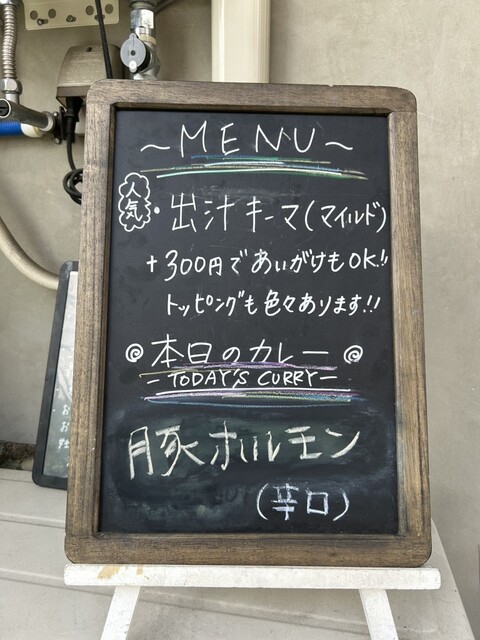 ～MENU～
人気・出汁キーマ(マイルド)
+300円であいがけもOK!!
トッピングも色々あります!!
本日のカレー
-TODAY'S CURRY-
豚ホルモン
(辛口)